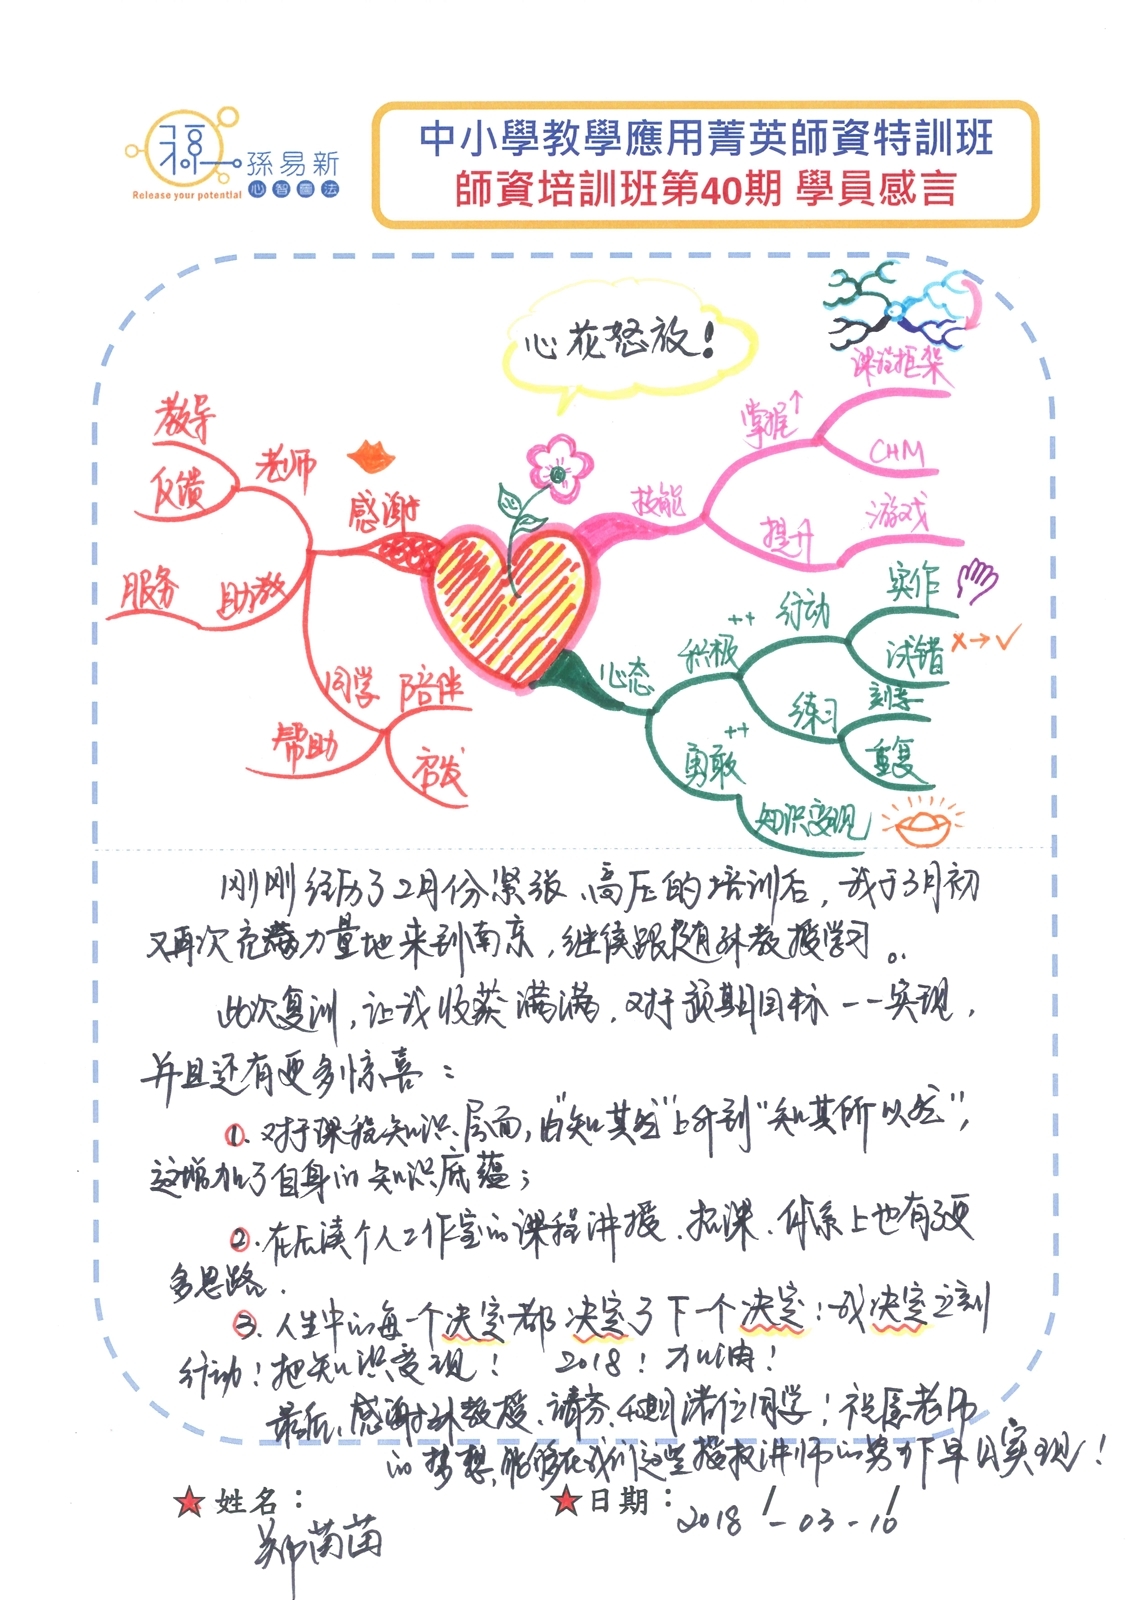 孫易新
心智圖法
Release your potential
中小學教學應用菁英師資特訓班
師資培訓班第40期 學員感言
心花怒放！
感谢
老师
教导
反馈
助教
服务
同学
陪伴
启发
帮助
技能
掌握↑
课程框架
CHM
提升
游戏
心态
积极
++
行动
实作
试错
×→✓
练习
刻意
重复
勇敢
++
知识变现
刚刚经历了2月份紧张、高压的培训后，我于3月初
又再次充满力量地来到南京，继续跟随孙教授学习。
此次复训，让我收获满满，对于预期目标一一实现，
并且还有更多惊喜：
1. 对于课程知识层面，由“知其然”上升到“知其所以然”，
这增加了自身的知识底蕴；
2. 在后续个人工作室的课程讲授、招课、体系上也有了更
多思路.
3. 人生中的每一个决定都决定了下一个决定！我决定立刻
行动！把知识变现！ 2018！加油！
最后，感谢孙教授、请芬、诸位同学！祝愿老师
的梦想，能够在我们这些授权讲师的努力下早日实现！
姓名：
郑茵茵
日期：
2018-03-10